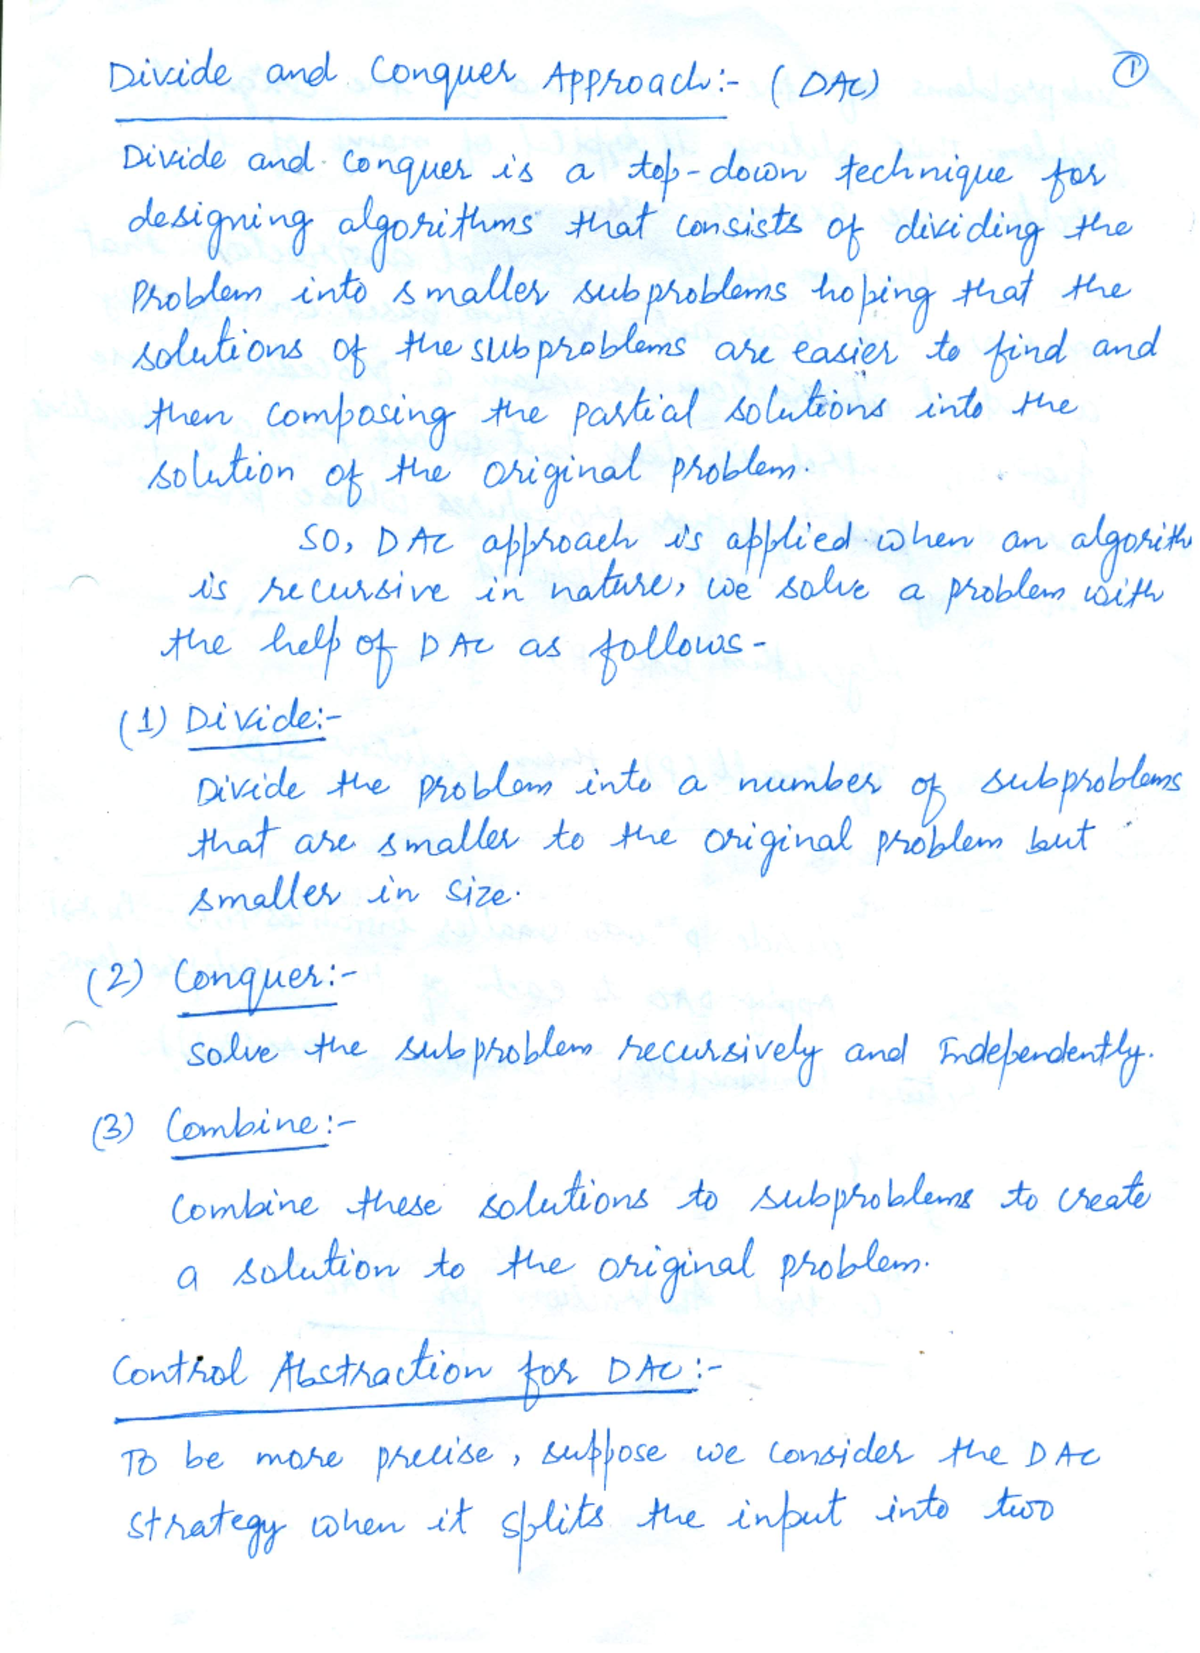 Divide and Conquer Approach:- (DAC)
①
Divide and Conquer is a top-down technique for
designing algorithms that consists of dividing the
Problem into smaller subproblems hoping that the
solutions of the subproblems are easier to find and
then composing the partial solutions into the
solution of the original problem.
So, DAC approach is applied when an algorith
is recursive in nature, we solve a problem with
the help of DAC as follows-
(1) Divide:-
Divide the problem into a number of subproblems
that are smaller to the original problem but
smaller in size.
(2) Conquer:-
Solve the subproblem recursively and Independently.
(3) Combine:-
Combine these solutions to subproblems to create
a solution to the original problem.
Control Abstraction for DAC:-
To be more precise, suppose we consider the DAC
strategy when it splits the input into two